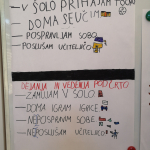 - V ŠOLO PRIHAJAM TOČNO
DOMA SE UČIM
- POSPRAVLJAM SOBO
- POSLUŠAM UČITELJICO
DEJANJA IN VEDENJA POD ČRTO
- ZAMUJAM V ŠOLO
- DOMA IGRAM IGRICE
- NE POSPRAVIM SOBE
- NE POSLUŠAM UČITELJICO